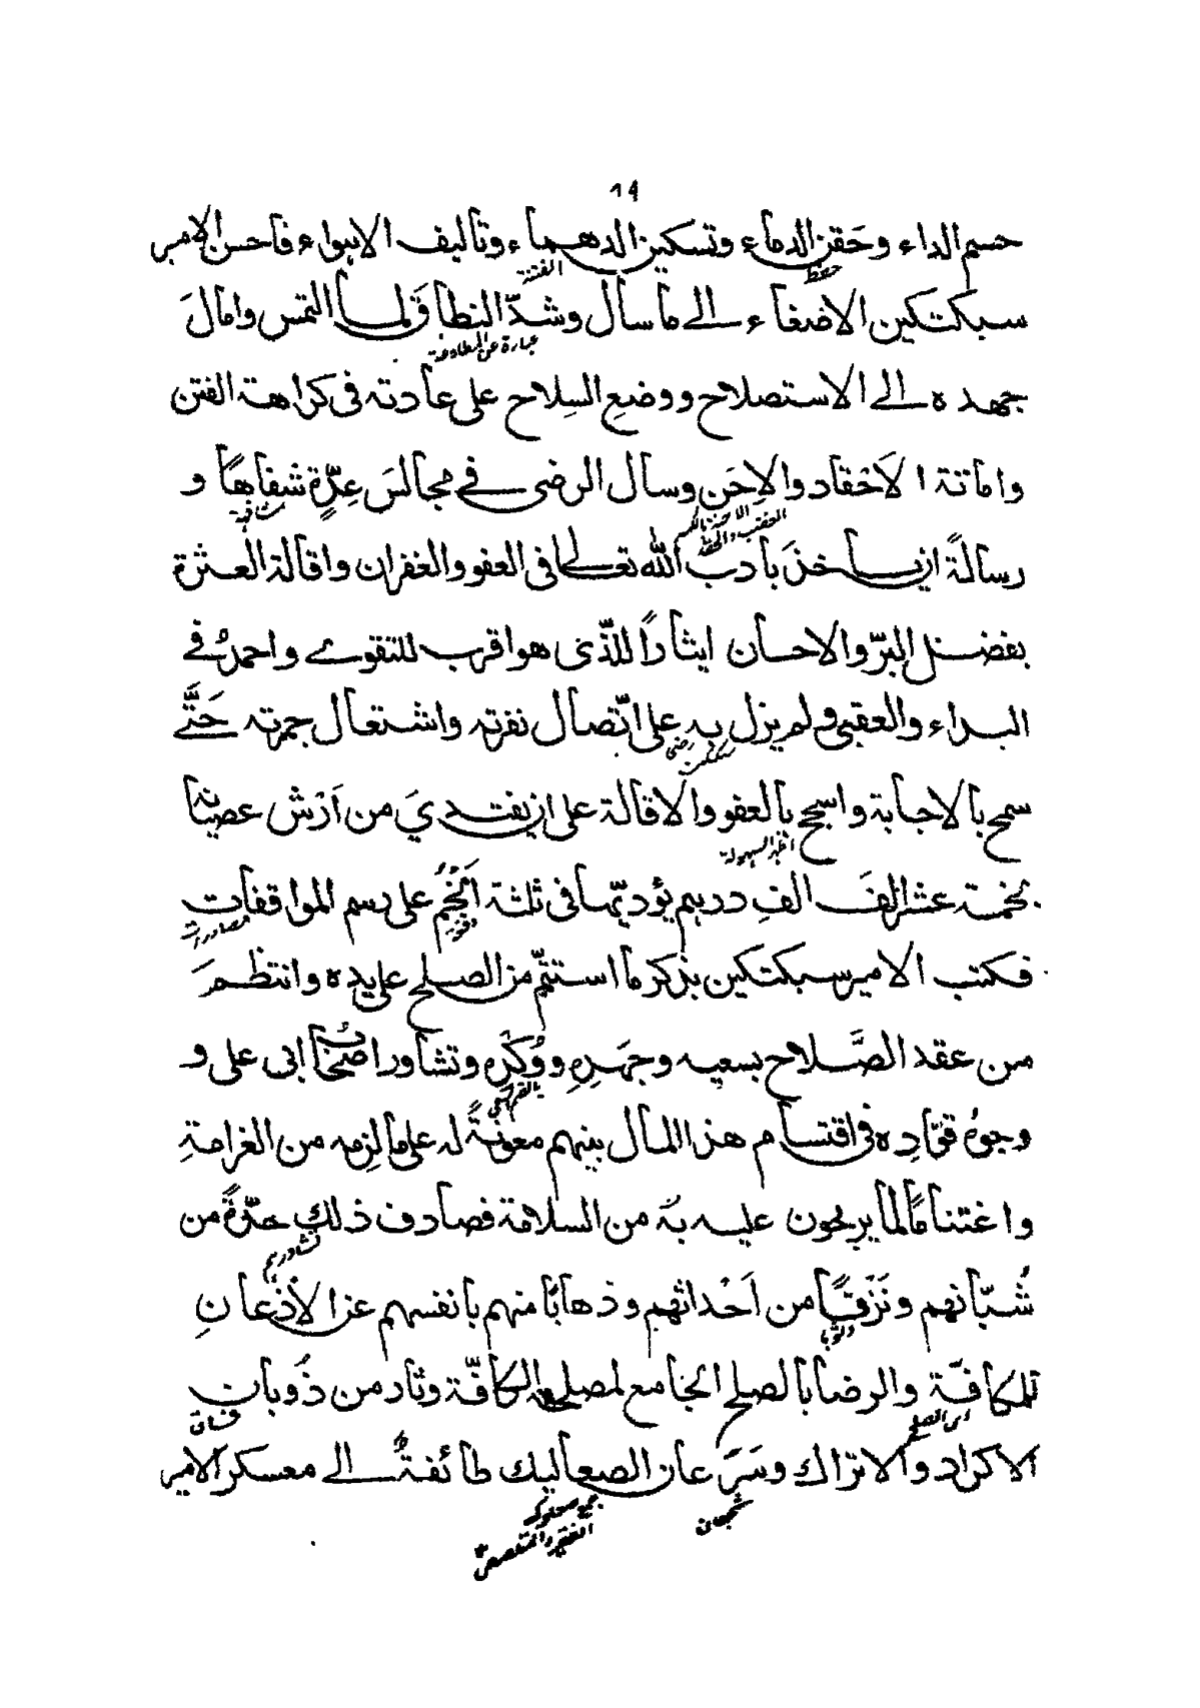 ١٩
حسم الداء وحَقن الدماء وتسكين الدهماء وتأليف الاهواء فأحسن الامير
حفظ
الفتنة
سبكتكين الاصغاء الى ما سأل وشدّ النطاق لما التمس وامالَ
عبارة عن المطاوعة
جهده الى الاستصلاح ووضعِ السِلاح على عادته فى كراهة الفتن
واماتة الاَحْقاد والاِحَن وسأل الرضى فى مجالسَ عِدّةٍ شفاهًا و
رسالةً ان يأخذَ بأدب الله تعالى فى العفو والغفران واقالة العثرة
بفضل البرّ والاحسان ايثارًا للّذى هو اقرب للتقوى واحمدُ فى
البداء والعقبى ولم يزل به على اتّصال نفرته واشتعال جمرته حَتَّى
سمح بالاجابة واسجح بالعفو والاقالة على ان يفتديَ من اَرْش عصيانه
اظهر السهولة
بخمسة عشر الفَ الفِ درهم يؤديّها فى ثلثة اَنْجُمٍ على رسم المواقفات
فكتب الامير سبكتكين بذكر ما استتمّ من الصلح على يده وانتظمَ
من عقد الصَّلاح بسعيه وجهدِهِ ووُكْدِهِ وتشاور اصحابُ ابى على و
وجوهُ قوّادِه فى اقتسام هذا المال بينهم معونةً له على ما لزمه من الغرامةِ
واغتنامًا لما يربحون عليه به من السلامة فصادف ذلك حدّةً من
شُبّانهم ونَزَقًا من اَحْداثهم وذهابًا منهم بأنفسهم عن الاِذْعانِ
للمكافّة والرضا بالصلح الجامع لمصلحة الكافّة وثار من ذُوبانِ
اى الصلح
الاكراد والاتراك وسَرَعان الصعاليك طائفةٌ الى معسكر الامير
شجعان
جمع صعلوك